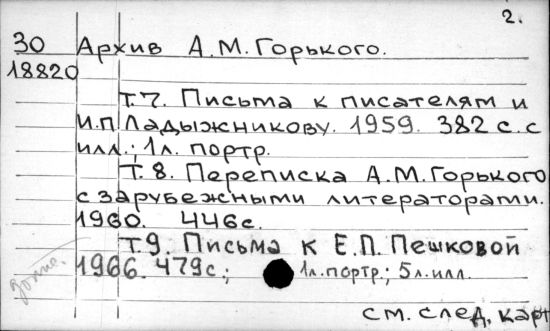 2.
30 Архив А.М.Горького.
18820
Т.7. Письма к писателям и
И.П.Ладыжникову. 1959. 382 с. с
илл.; 1л. портр.
Т.8. Переписка А.М.Горького
с зарубежными литераторами.
1960. 446с.
Т.9. Письма к Е.П.Пешковой
1966. 479с.; 1л.портр.; 5л.илл.
см. след. карт